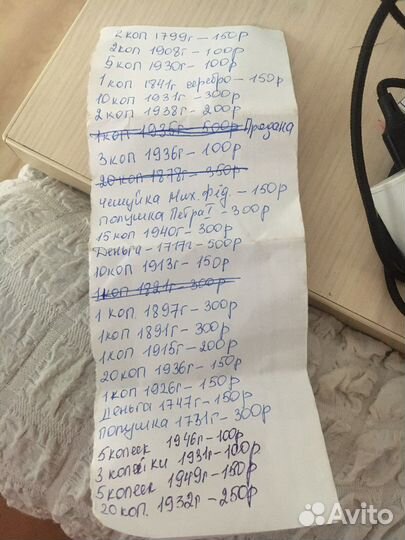 2 коп 1799г - 150р
2коп 1908г - 100р
5 коп 1930г - 100р
1 коп 1841г серебро - 150р
10 коп 1931г - 300р
2 коп 1938г - 200р
1 коп 1935г - 500р Продана
3 коп 1936г - 100р
20 коп 1878г - 350р
чешуйка Мих. Фёд - 150р
полушка Петра I - 300р
15 коп 1940г - 300р
Деньга - 1717г - 500р
10коп 1913г - 150р
1 коп 1821г - 300р
1 коп 1897г - 300р
1коп 1891г - 300р
1коп 1915г - 200р
20 коп 1936г - 150р
1 коп 1926г - 150р
Деньга 1747г - 150р
полушка 1731г - 300р
5 копеек 1946г - 100р
3 копейки 1931г - 100р
5 копеек 1949г - 150р
20 коп. 1932г - 250р
Avito